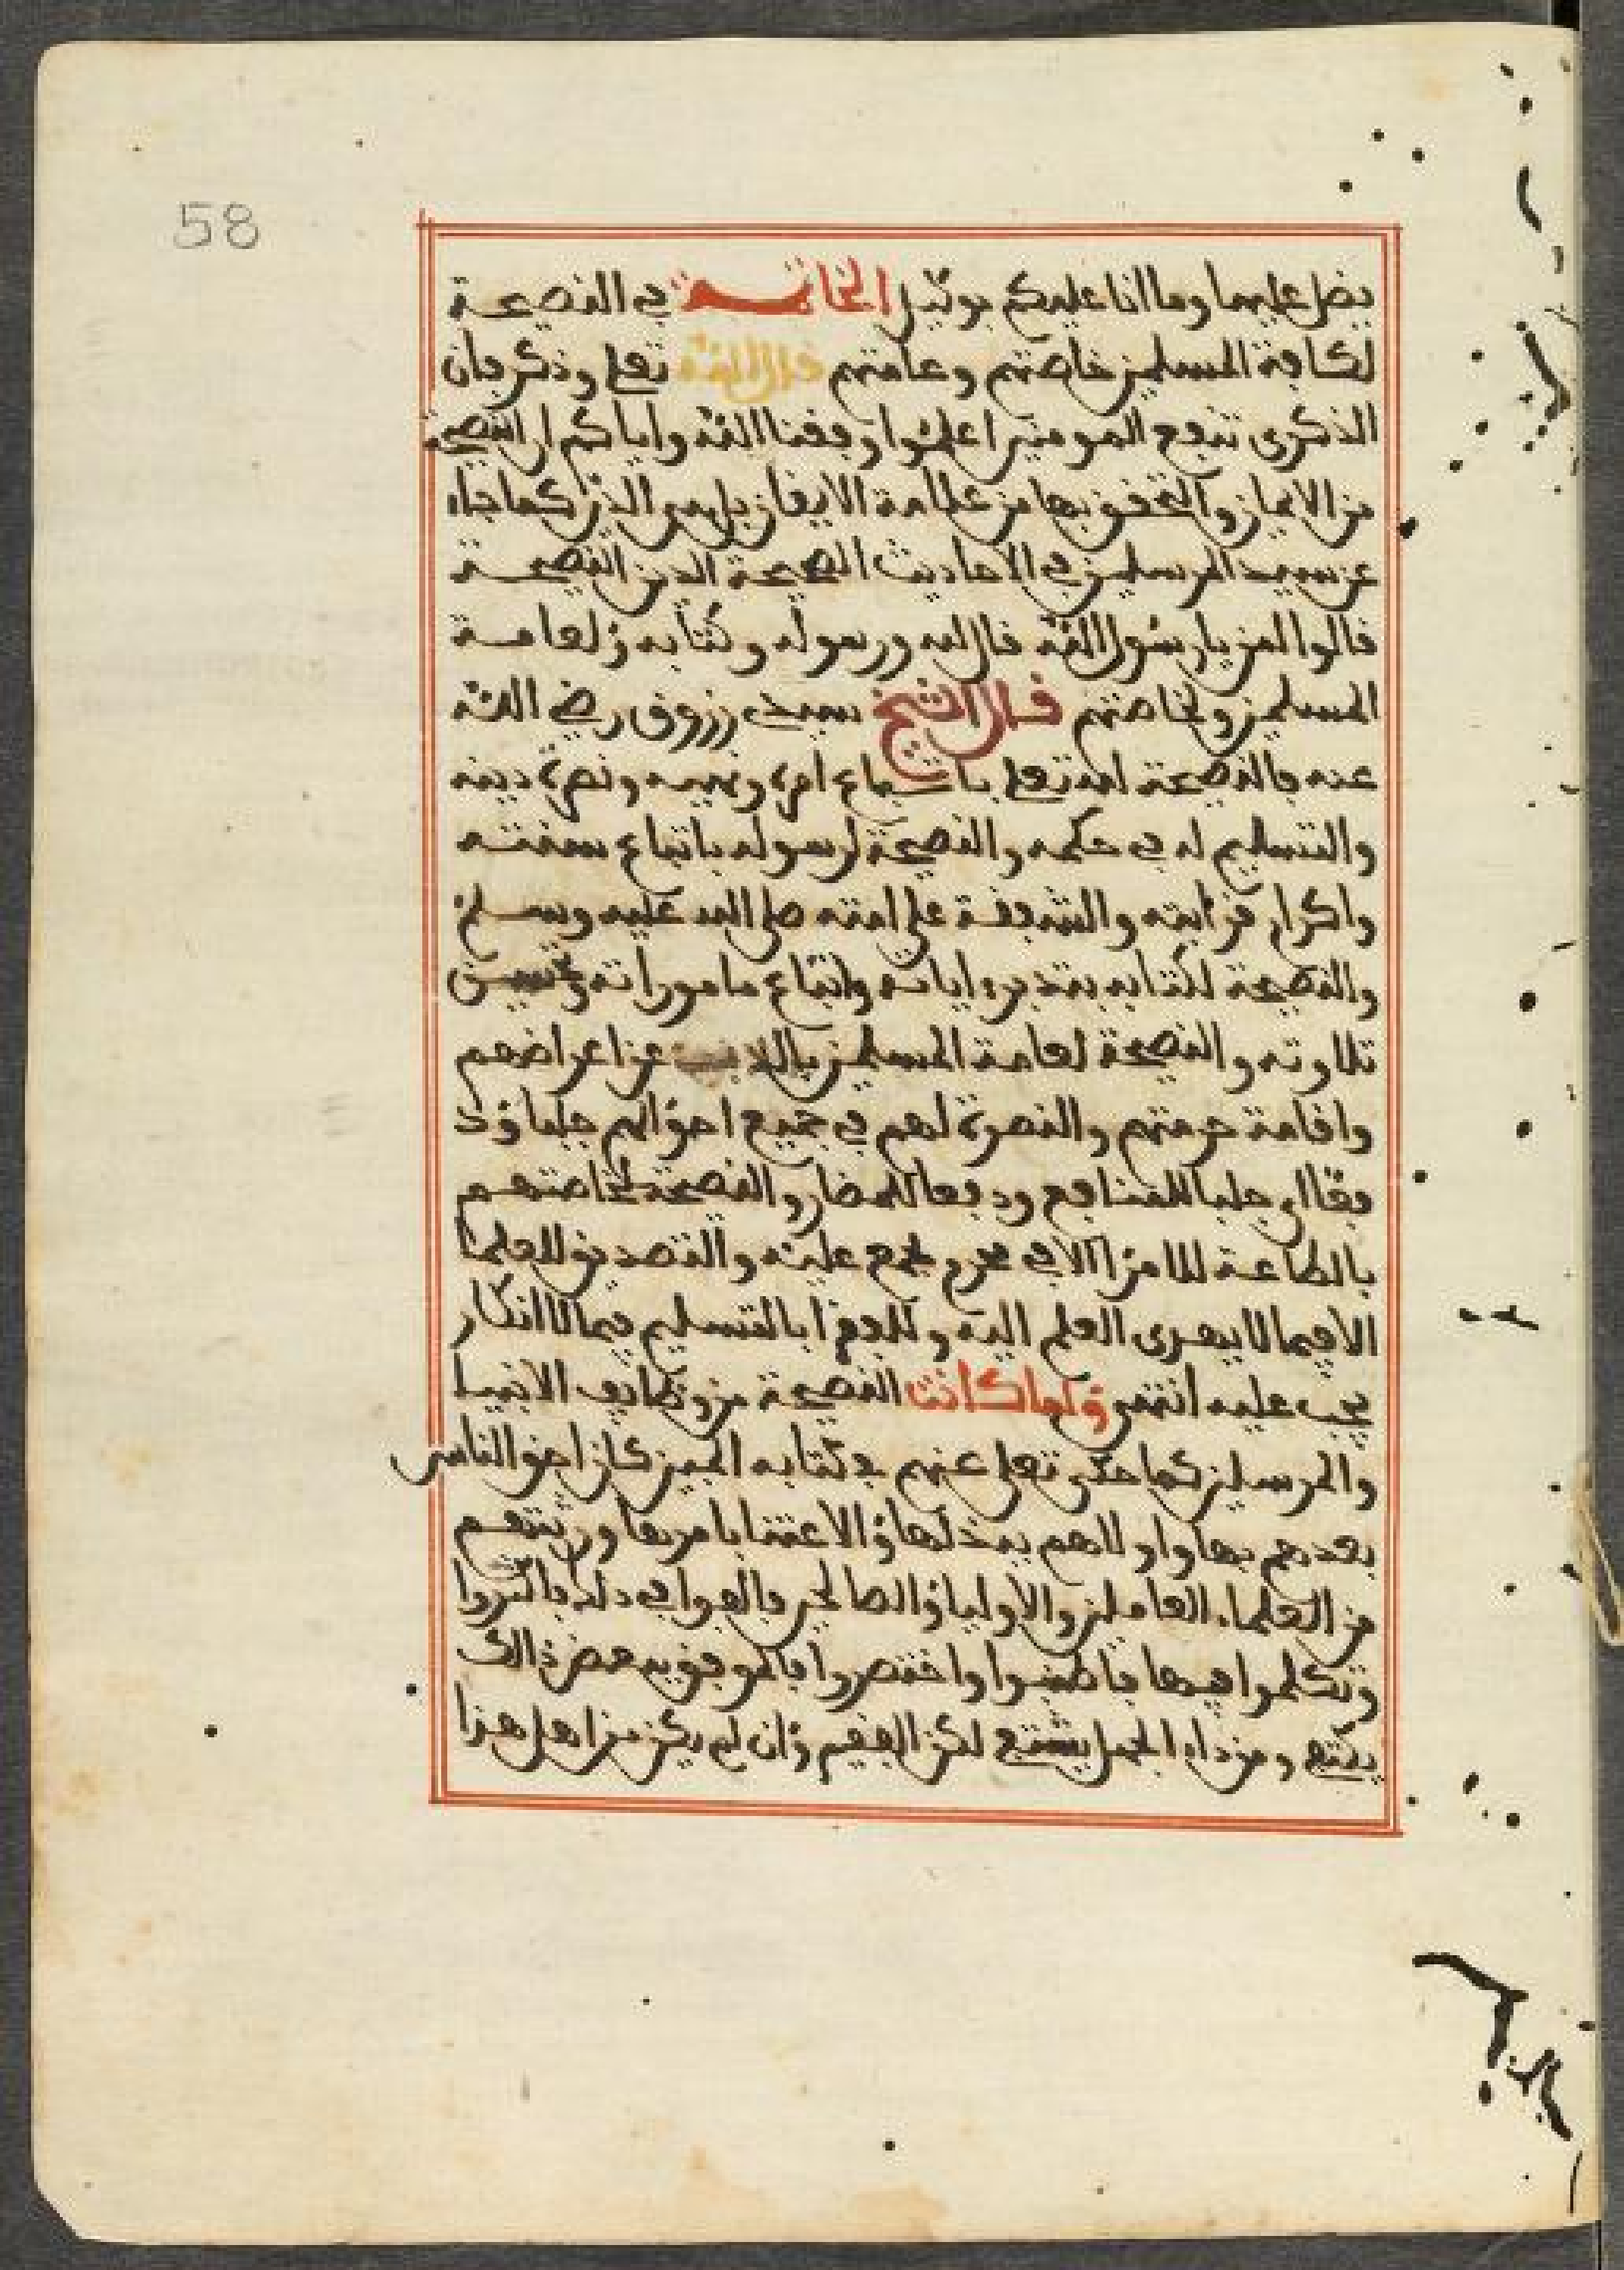 58
يضل عليها وما انا عليكم بوكيل الخاتمة في النصيحة
لكافة المسلمين خاصتهم وعامتهم قال الله تعلى وذكر فان
الذكرى تنفع المومنين اعلموا وفقنا الله واياكم ان النصيحة
من الايمان والتحقق بها من علامة الايقان بل هي الدين كما جاء
عن سيد المرسلين في الاحاديث الصحيحة الدين النصيحة
قالوا لمن يا رسول الله قال لله ورسوله وكتابه ولعامة
المسلمين ولخاصتهم قال الشيخ سيدي زروق رضي الله
عنه فالنصيحة لله تعلى باتباع امره ونهيه ونصرة دينه
والتسليم له في حكمه والنصيحة لرسوله باتباع سنته
واكرام قرابته والشفقة على امته صلى الله عليه وسلم
والنصيحة لكتابه بتدبر ءاياته واتباع ماموراته وتحسين
تلاوته والنصيحة لعامة المسلمين بالذب عن اعراضهم
واقامة حرمتهم والنصرة لهم في جميع احوالهم جلبا ود
فعا اي جلبا للمنافع ودفعا للمضار والنصيحة لخاصتهم
بالطاعة للامرا الا في محرم مجمع عليه والتصديق للعلما
الا فيما لا يهدى العلم اليه وللفقرا بالتسليم فيما لا انكار
يجب عليه انتهى ولما كانت النصيحة من وظايف الانبيا
والمرسلين كما حكى تعلى عنهم في كتابه المبين كان احق الناس
بعدهم بها واولاهم ببذلها والاعتنا بامرها ورثتهم
من العلماء العاملين والاوليا والصالحين فالفوا في ذلك فاكثروا
وتكلموا فيها فاطنبوا واختصروا فالموفق ببعض ذالك
يكتفي ومن داء الجهل يشتفي لكن الفقير وان لم يكن من اهل هذا